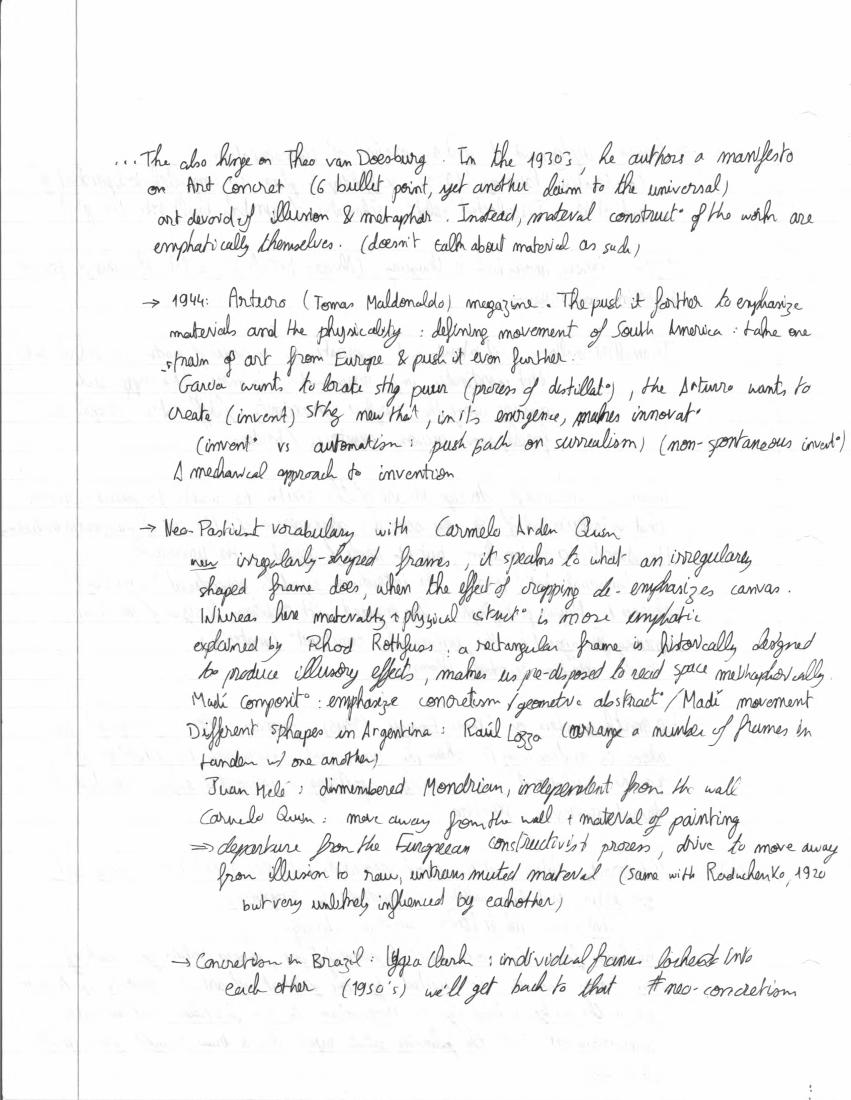 ...The also hinge on Theo van Doesburg. In the 1930s, he authors a manifesto
on Art Concret (6 bullet point, yet another claim to the universal)
art devoid of illusion & metaphor. Instead, material construct° of the work are
emphatically themselves. (doesn't talk about material as such)
→ 1944: Arturo (Tomas Maldonaldo) magazine. The push it further to emphasize
materials and the physicality : defining movement of South America : take one
strain of art from Europe & push it even further.
Garcia wants to locate sthg purer (process of distillat°), the Arturo wants to
create (invent) sthg new that, in its emergence, makes innovat°
(invent° vs automation : push back on surrealism) (non-spontaneous invent°)
A mechanical approach to invention
→ Neo-Pastient vocabulary with Carmelo Arden Quin
new irregularly-shaped frames, it speaks to what an irregularly
shaped frame does, when the effect of cropping de-emphasizes canvas.
Whereas here materiality + physical struct° is more emphatic
explained by Rhod Rothfuss : a rectangular frame is historically designed
to produce illusory effects, makes us pre-disposed to read space methaphorically.
Madí composit° : emphasize concretism / geometric abstract° / Madí movement
Different sphapes in Argentina : Raúl Lozza (arrange a number of frames in
tanden w/ one another)
Juan Melé : dismembered Mondrian, independent from the wall
Carmelo Quin : move away from the wall + material of painting
⇒ departure from the European constructivist process, drive to move away
from illusion to raw, untransmuted material (same with Roduchenko, 1920
but very unlikely influenced by eachother)
→ Concretism in Brazil : Lygia Clark : individual frames locked into
each other (1950's) we'll get back to that #neo-concretism